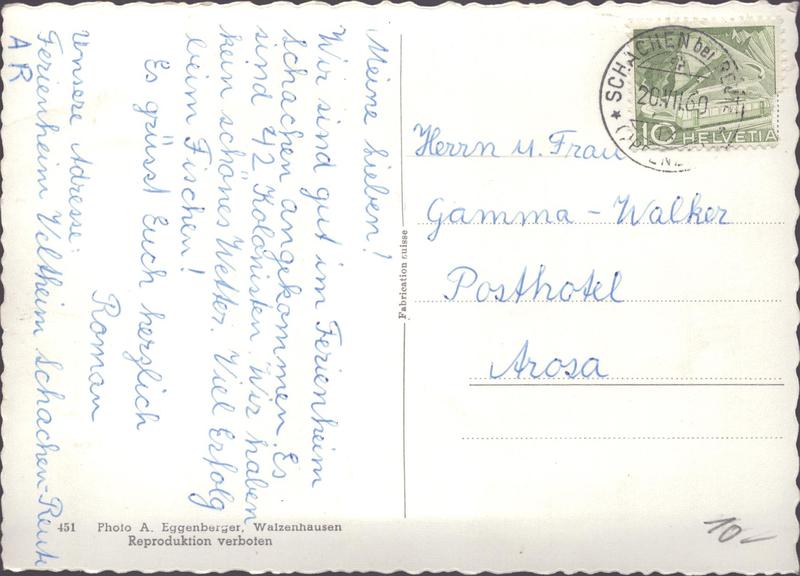 Meine Lieben!
Wir sind gut im Ferienheim
Schachen angekommen. Es
sind 42 Kolonisten. Wir haben
kein schönes Wetter. Viel Erfolg
beim Fischen!
Es grüsst Euch herzlich
Roman
Unsere Adresse:
Ferienheim Veltheim Schachen-Reute
AR
451 Photo A. Eggenberger, Walzenhausen
Reproduktion verboten
Fabrication suisse
SCHACHEN bei
20.VII.60
10 HELVETIA
Herrn u. Frau
Gamma-Walker
Posthotel
Arosa
10.-